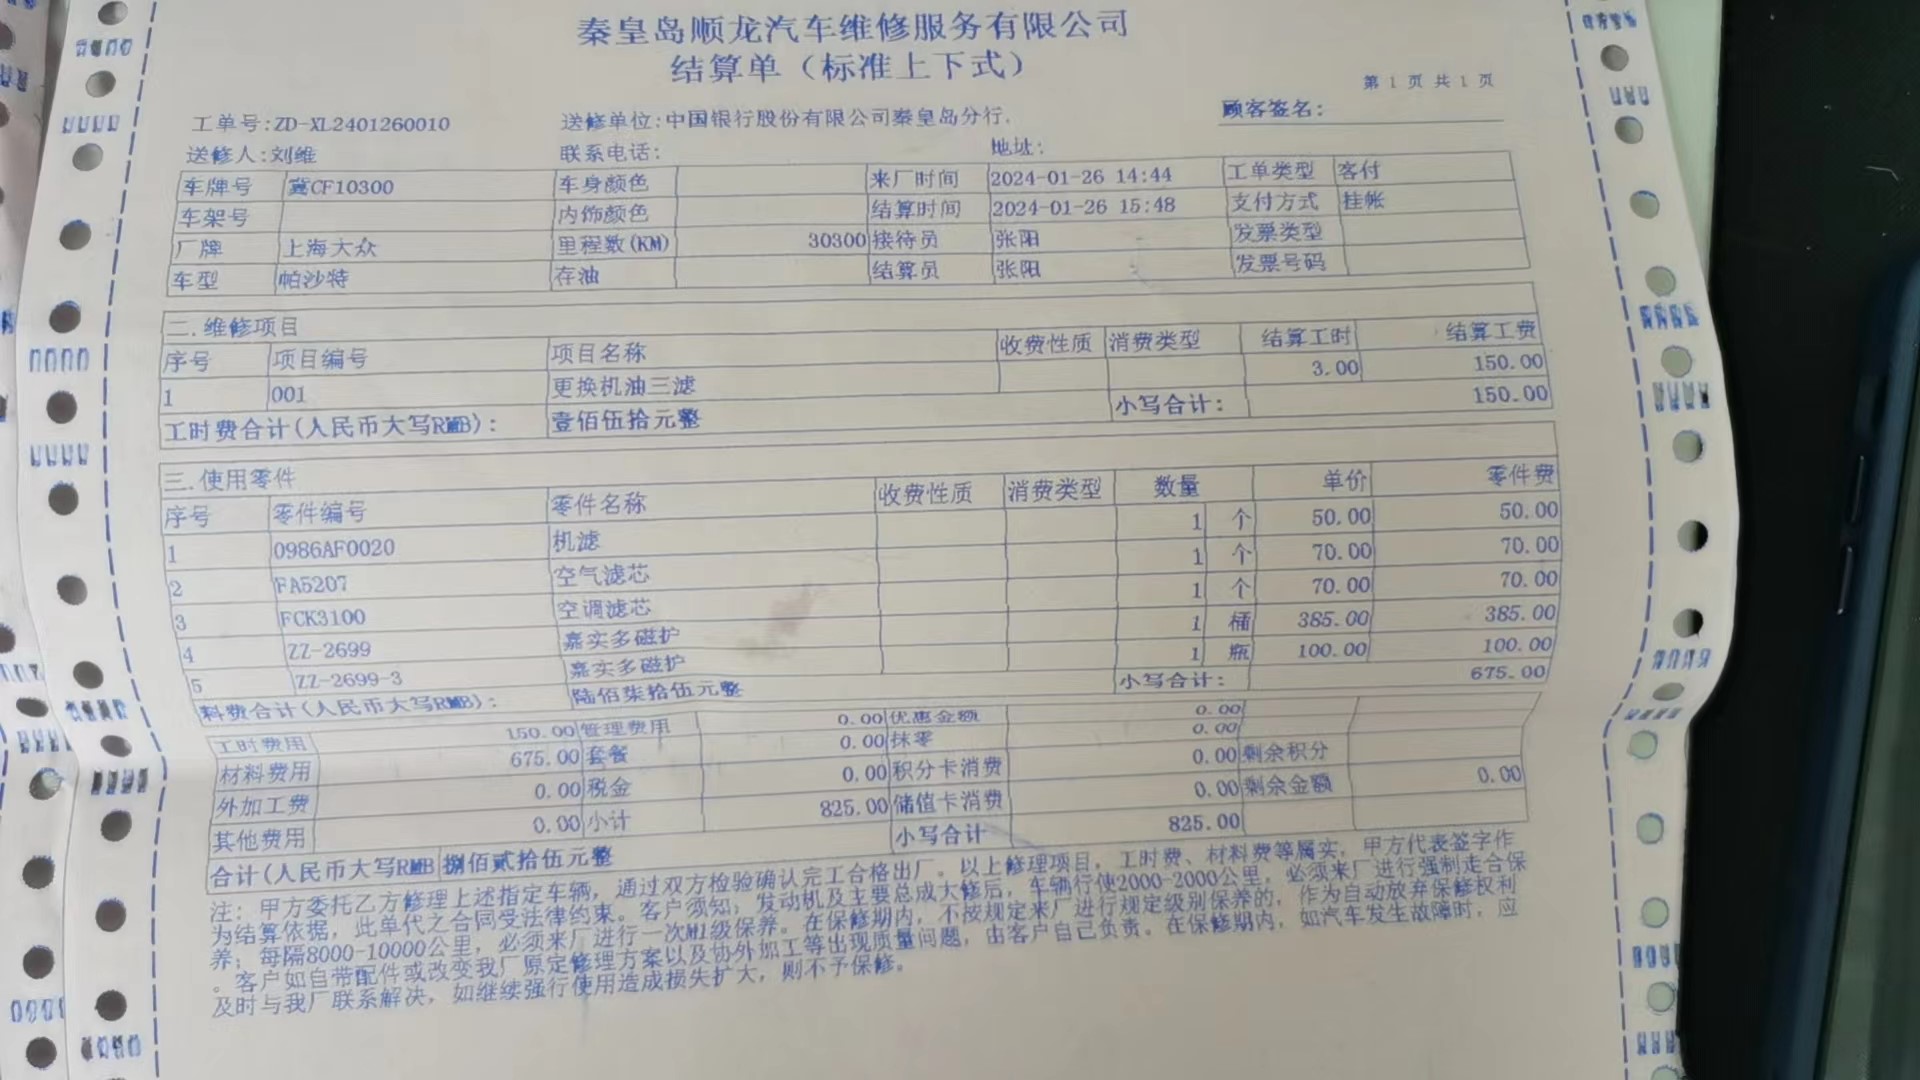 秦皇岛顺龙汽车维修服务有限公司
结算单（标准上下式）
第 1 页 共 1 页
工单号:ZD-XL2401260010 送修单位:中国银行股份有限公司秦皇岛分行. 顾客签名:
送修人:刘维 联系电话: 地址:
车牌号 冀CF10300 车身颜色 来厂时间 2024-01-26 14:44 工单类型 客付
车架号 内饰颜色 结算时间 2024-01-26 15:48 支付方式 挂帐
厂牌 上海大众 里程数(KM) 30300 接待员 张阳 发票类型
车型 帕沙特 存油 结算员 张阳 发票号码
二.维修项目
序号 项目编号 项目名称 收费性质 消费类型 结算工时 结算工费
1 001 更换机油三滤 3.00 150.00
工时费合计(人民币大写RMB): 壹佰伍拾元整 小写合计: 150.00
三.使用零件
序号 零件编号 零件名称 收费性质 消费类型 数量 单价 零件费
1 0986AF0020 机滤 1 个 50.00 50.00
2 FA5207 空气滤芯 1 个 70.00 70.00
3 FCK3100 空调滤芯 1 个 70.00 70.00
4 ZZ-2699 嘉实多磁护 1 桶 385.00 385.00
5 ZZ-2699-3 嘉实多磁护 1 瓶 100.00 100.00
料费合计(人民币大写RMB): 陆佰柒拾伍元整 小写合计: 675.00
工时费用 150.00 管理费用 0.00 优惠金额 0.00
材料费用 675.00 套餐 0.00 抹零 0.00
外加工费 0.00 税金 0.00 积分卡消费 0.00 剩余积分
其他费用 0.00 小计 825.00 储值卡消费 0.00 剩余金额 0.00
合计(人民币大写RMB 捌佰贰拾伍元整 小写合计 825.00
注：甲方委托乙方修理上述指定车辆，通过双方检验确认完工合格出厂。以上修理项目，工时费、材料费等属实，甲方代表签字作
为结算依据，此单代之合同受法律约束。客户须知：发动机及主要总成大修后，车辆行使2000-2000公里，必须来厂进行强制走合保
养；每隔8000-10000公里，必须来厂进行一次M1级保养。在保修期内，不按规定来厂进行规定级别保养的，作为自动放弃保修权利
。客户如自带配件或改变我厂原定修理方案以及协外加工等出现质量问题，由客户自己负责。在保修期内，如汽车发生故障时，应
及时与我厂联系解决，如继续强行使用造成损失扩大，则不予保修。